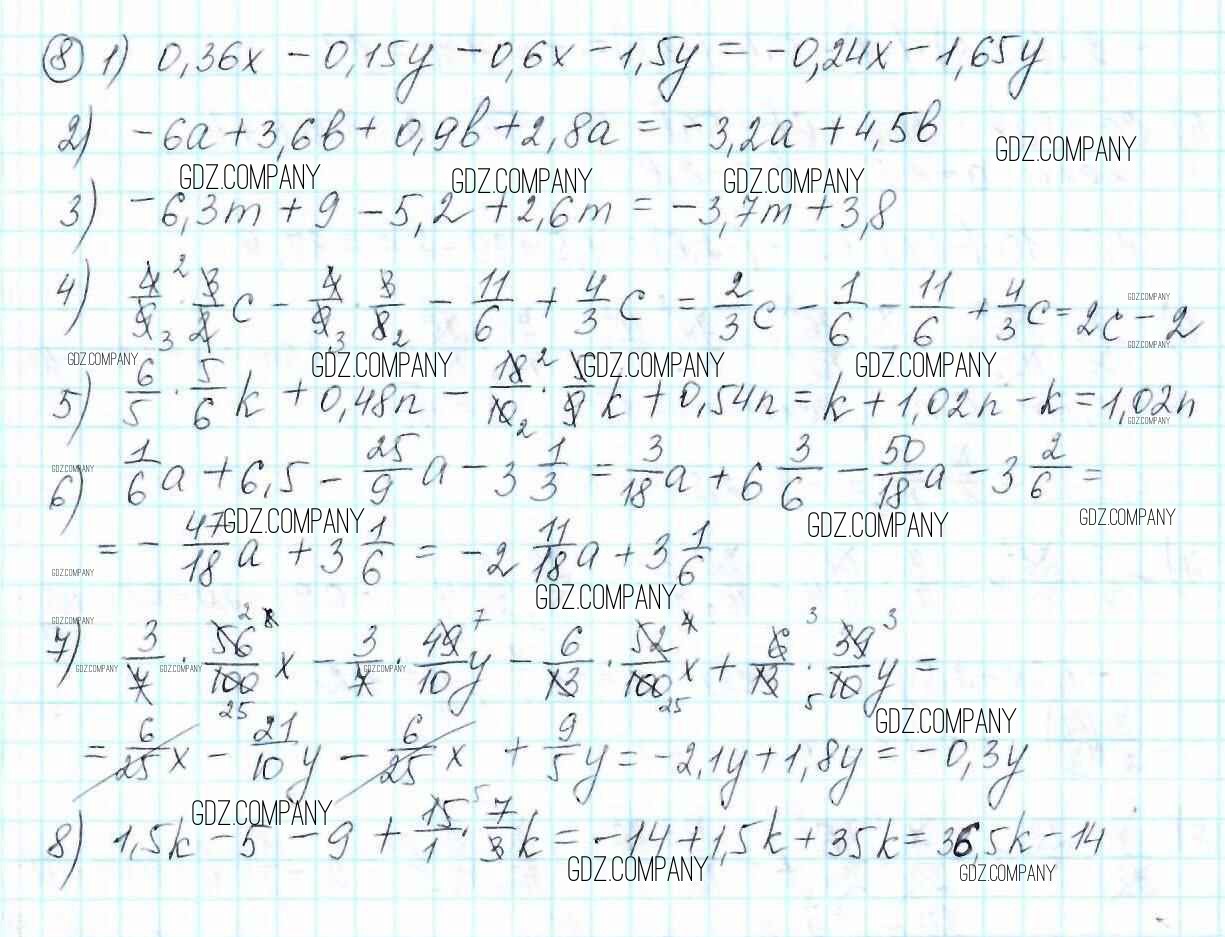 8 1) 0,36x - 0,15y - 0,6x - 1,5y = -0,24x - 1,65y
2) -6a + 3,6b + 0,9b + 2,8a = -3,2a + 4,5b
GDZ.COMPANY
GDZ.COMPANY GDZ.COMPANY GDZ.COMPANY
3) -6,3m + 9 - 5,2 + 2,6m = -3,7m + 3,8
4) 4/9 · 3/2 c - 4/9 · 3/8 - 11/6 + 4/3 c = 2/3 c - 1/6 - 11/6 + 4/3 c = 2c - 2
GDZ.COMPANY GDZ.COMPANY
GDZ.COMPANY GDZ.COMPANY GDZ.COMPANY GDZ.COMPANY
5) 6/5 · 5/6 k + 0,48n - 18/10 · 5/9 k + 0,54n = k + 1,02n - k = 1,02n
GDZ.COMPANY
6) 1/6 a + 6,5 - 25/9 a - 3 1/3 = 3/18 a + 6 3/6 - 50/18 a - 3 2/6 =
GDZ.COMPANY
GDZ.COMPANY GDZ.COMPANY GDZ.COMPANY
= - 47/18 a + 3 1/6 = -2 11/18 a + 3 1/6
GDZ.COMPANY GDZ.COMPANY
GDZ.COMPANY
7) 3/7 · 56/100 x - 3/7 · 49/10 y - 6/13 · 52/100 x + 6/13 · 39/10 y =
GDZ.COMPANY GDZ.COMPANY GDZ.COMPANY
GDZ.COMPANY
= 6/25 x - 21/10 y - 6/25 x + 9/5 y = -2,1y + 1,8y = -0,3y
GDZ.COMPANY
8) 1,5k - 5 - 9 + 15/1 · 7/3 k = -14 + 1,5k + 35k = 36,5k - 14
GDZ.COMPANY GDZ.COMPANY